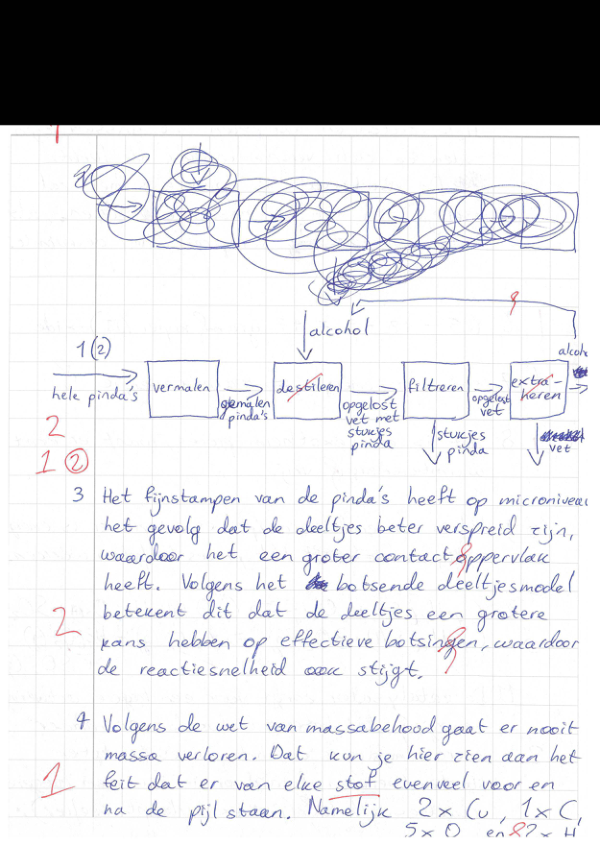 alcohol
1(2)
alcoho
hele pinda's
vermalen
gemalen
pinda's
destileren
opgelost
vet met
stukjes
pinda
filtreren
opgelost
vet
extra-
heren
stukjes
pinda
vet
2
1 (2)
3 Het fijnstampen van de pinda's heeft op microniveau
het gevolg dat de deeltjes beter verspreid zijn,
waardoor het een groter contactoppervlak
heeft. Volgens het botsende deeltjesmodel
betekent dit dat de deeltjes een grotere
2
kans hebben op effectieve botsingen, waardoor
de reactiesnelheid ook stijgt.
4 Volgens de wet van massabehoud gaat er nooit
massa verloren. Dat kun je hier zien aan het
1
feit dat er van elke stof evenveel voor en
na de pijl staan. Namelijk 2x Cu, 1x C,
5x O en 2x H